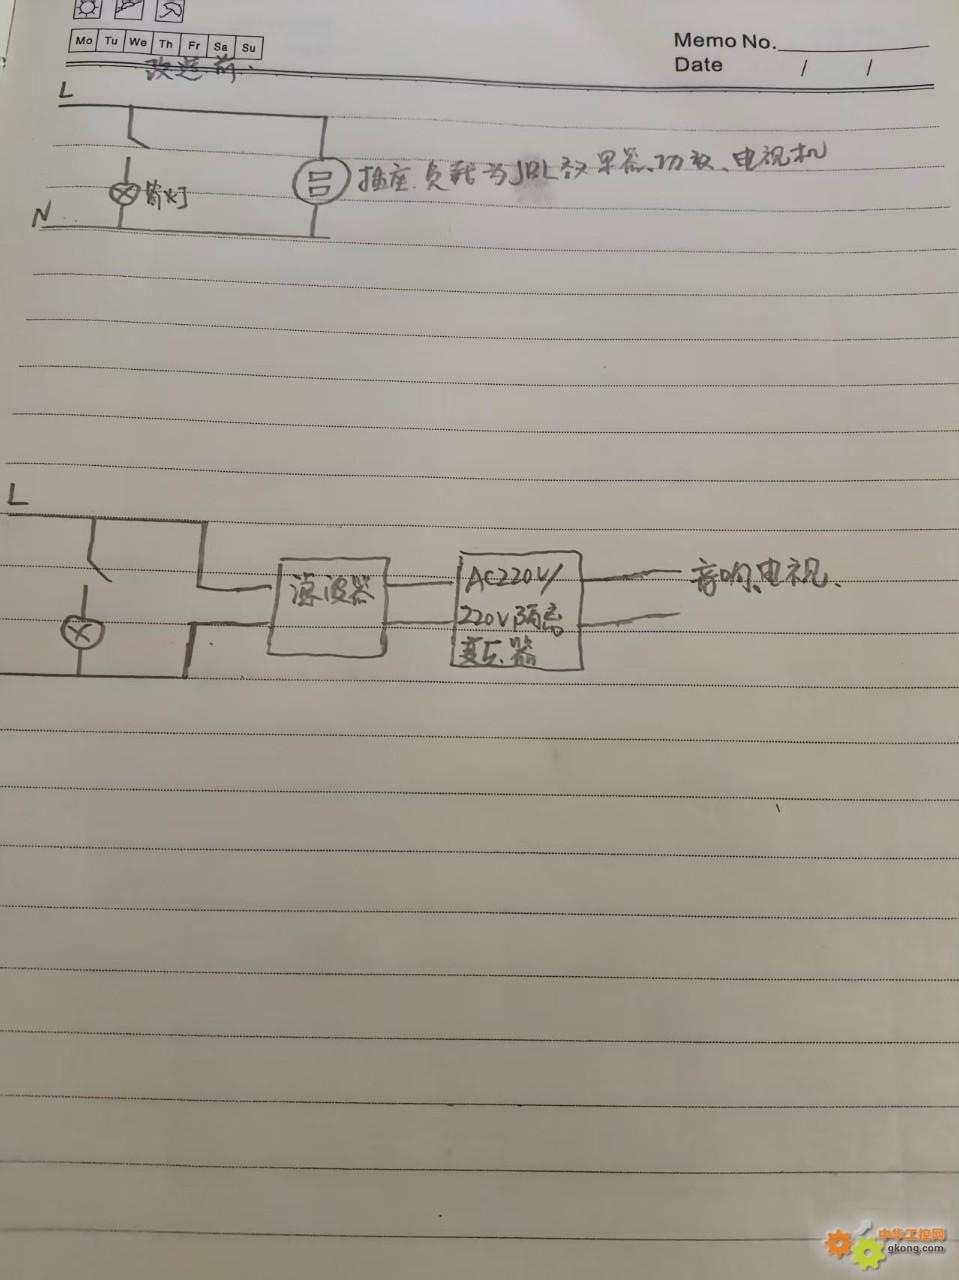 Mo Tu We Th Fr Sa Su
Memo No.
Date / /
改造前.
L
插座.负载为JBL效果器、功放、电视机
筒灯
N
L
滤波器
AC220V/
220V隔离
变压器
音响、电视、
中华工控网
gkong.com